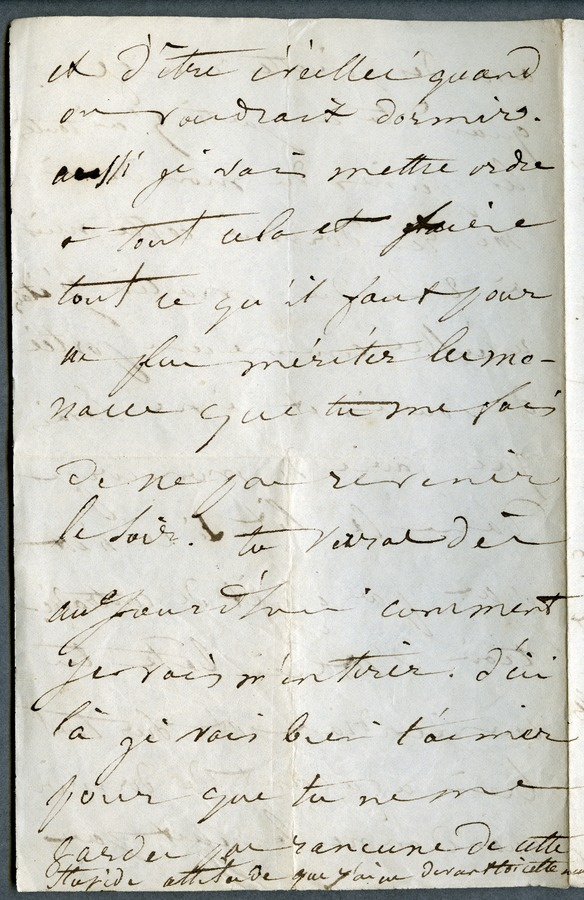 et d'être éveillée quand
on voudrait dormir.
aussi je vais mettre ordre
à tout cela et faire
tout ce qu'il faut pour
ne plus mériter les me-
naces que tu me fais
de ne pas revenir
le soir. tu verras dès
aujourd'hui comment
je vais m'en tirer. d'ici
là je vais bien t'aimer
pour que tu ne me
gardes pas rancune de cette
stupide attitude que j'ai eue devant toi cette